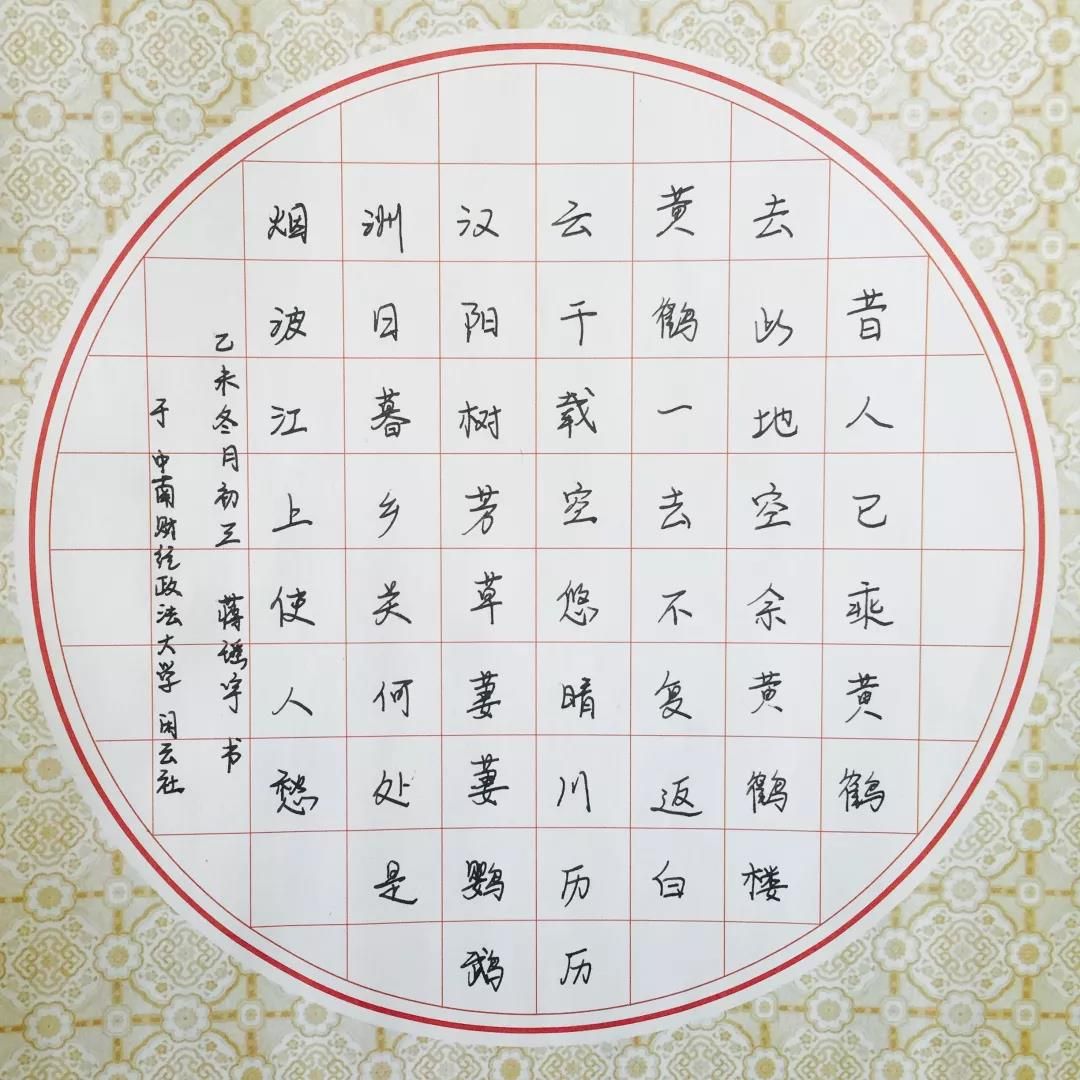 昔人已乘黄鹤
去此地空余黄鹤楼
黄鹤一去不复返白
云千载空悠晴川历历
汉阳树芳草萋萋鹦鹉
洲日暮乡关何处是
烟波江上使人愁
乙未冬月初三 蒋宇 书
于 中南财经政法大学 闲云社